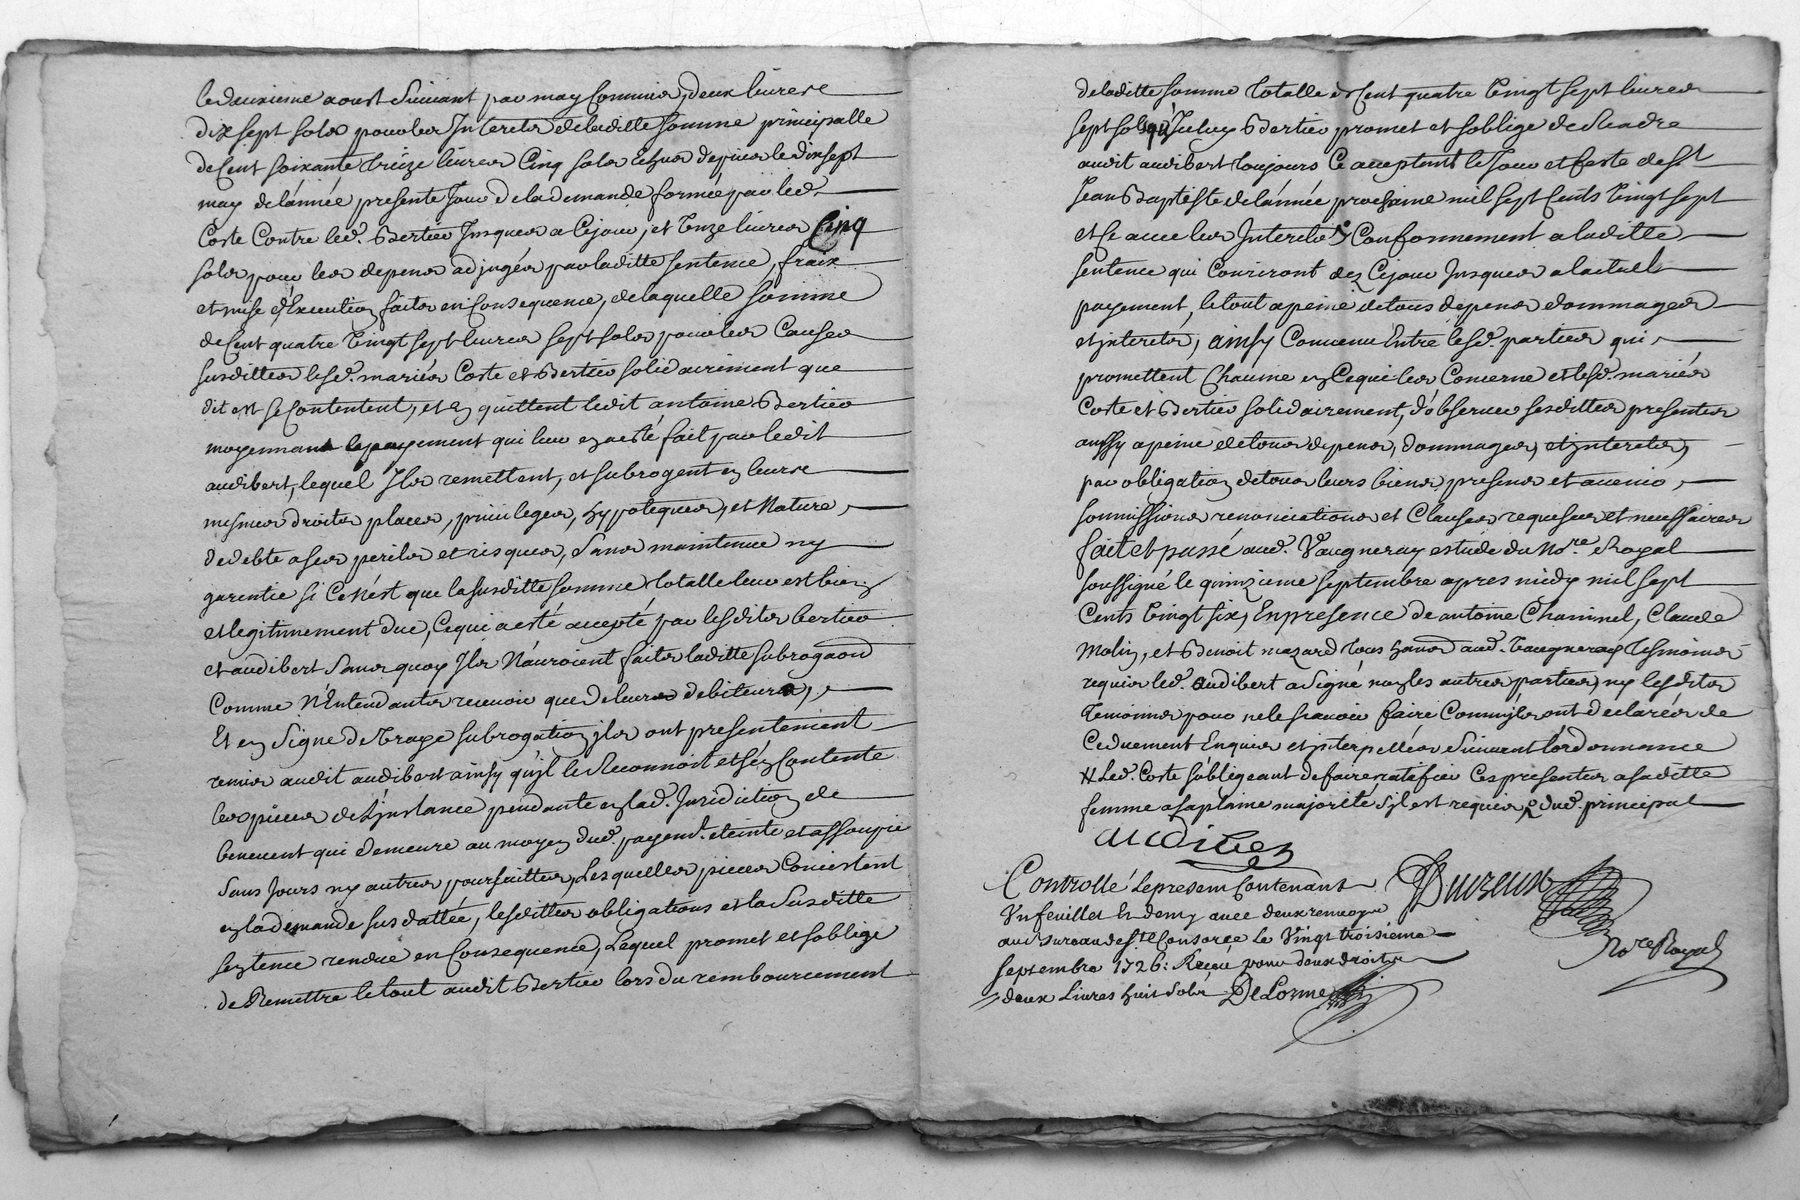 le deuxieme aoust Suivant par may Commis, deux livres
dix sept sols pour les Interets de laditte somme principalle
de Cent soixante treize livres Cinq sols Echus depuis le dix sept
may de lánnée presente Jour de la demande formée par led.
Coste Contre led. Bertier Jusques a Cejour, et Onze livres Cinq
sols pour les depens adjugés par laditte sentence, fraix
et mise d'Execution faits en Consequence, de laquelle somme
de Cent quatre Vingt sept livres sept sols pour les Causes
susdittes lesd. mariés Coste et Bertier solidairement que
dit est se Contentent, et en quittent ledit antoine Bertier
moyennant le payement qui leur en a esté fait par ledit
audibert, lequel Ils remettent, et subrogent en leurs
mesmes droits places, privileges, hypoteques, et Nature,
de debte a ses perils et risques, Sans maintenue ny
garentie si Ce nést que la susditte somme totalle leur est bien
et legitimement due, Ce qui a esté accepté par lesdits bertier
et audibert Sans quoy Ils Náuroient faits laditte subrogaon
Comme N'Entendants recevoir que de leurs debiteurs,
Et en Signe de Vraye subrogation ils ont presentement
remis audit audibert ainsy qu'il le Reconnoit et s'en Contente
les pieces de L'instance pendante en lad. Juridiction de
benevent qui demeure au moyen dud. payemt. eteinte et assoupie
Sans Jours ny autres poursuittes, Lesquelles pieces Consistent
en la demande sus dattée, lesdittes obligations et la Susditte
sentence rendue en Consequence, Lequel promet et soblige
de Remettre le tout audit Bertier lors du remboursement
de laditte somme totalle de Cent quatre Vingt sept livres
sept sols qu'Iceluy Bertier promet et soblige de Rendre
audit audibert toujours Ce acceptant le Jour et feste de St
Jean Baptiste de lánnée prochaine mil sept Cents Vingt sept
et Ce avec les Interets Conformement a laditte
sentence qui Couriront dez Cejour Jusques a lactuel
payement, le tout a peine de tous depens dommages
et interets, ainsy Convenu Entre lesd. parties qui
promettent Chacune en Ce qui les Concerne et lesd. mariés
Coste et Bertier solidairement, d'observer ses dittes presentes
aussy a peine de tous depens, dommages, et interets,
par obligation de tous leurs biens presens et avenir,
soumissions renonciations et Clauses requeses et necessaires
fait et passé aud. Vaugneray estude du Nore. Royal
soussigné le quinzieme septembre apres midy mil sept
Cents Vingt six, En presence de antoine Chaninel, Claude
Molin, et Benoit mazard tous habs aud. Vaugneray tesmoins
requis led. audibert a Signé non les autres parties, ny lesdits
temoins pour ne le scavoir faire Comm'ils ont declarés de
Ce duement Enquis et interpellés Suivant lórdonnance
# Led. Coste sobligeant de faire ratifier Ces presentes a saditte
femme a sa plaine majorité S'il est requis dud. principal
audiber
Controllé Le present Contenant
Un feuillet et demy avec deux renvoys
au Bureau de Ste Consorce Le Vingt troisieme
Septembre 1726: Reçeu pour deux droits
deux Livres huit Sols DeLorme
Nore Royal